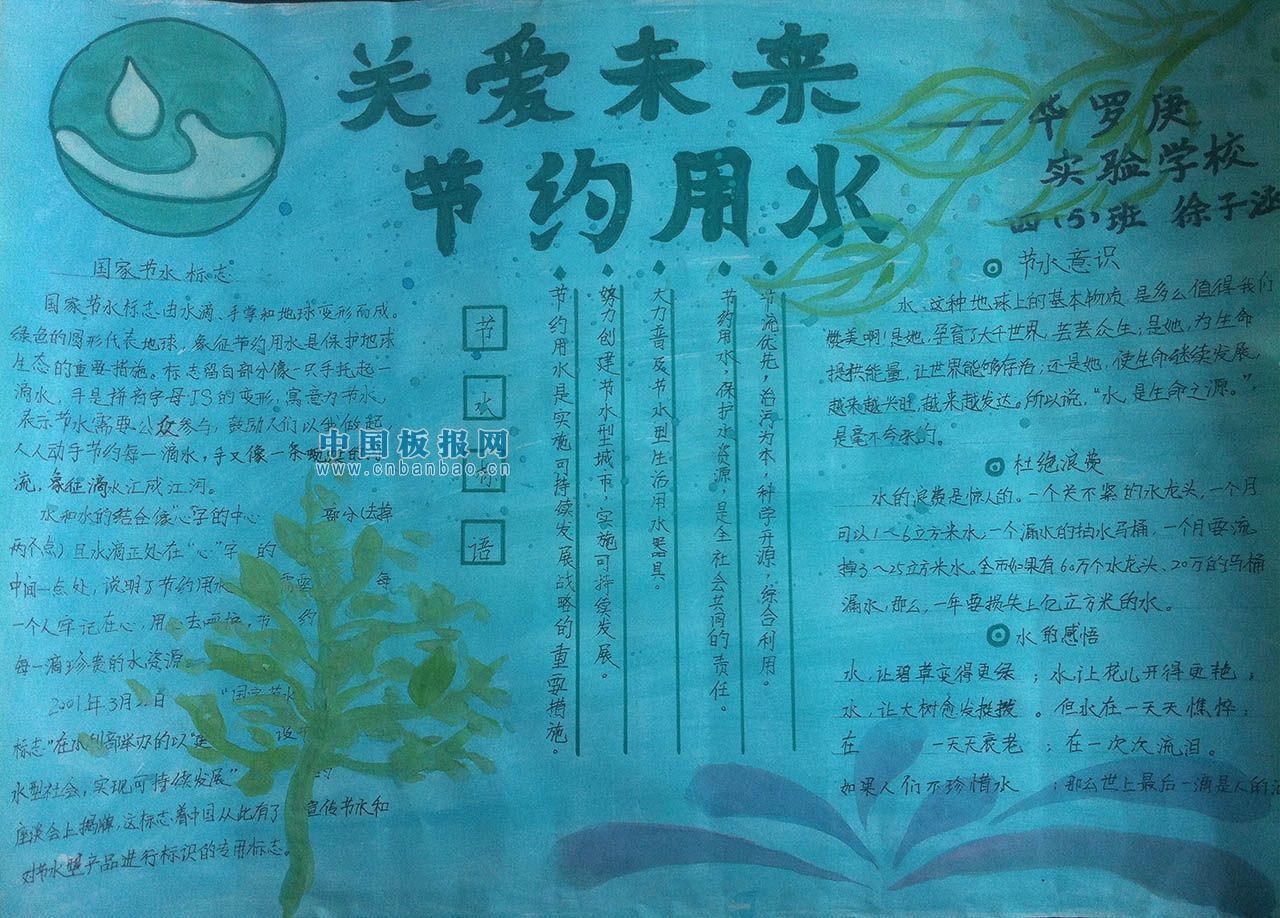 关爱未来
节约用水
——华罗庚
实验学校
四(5)班 徐子涵
国家节水标志
国家节水标志由水滴、手掌和地球变形而成。
绿色的圆形代表地球，象征节约用水是保护地球
生态的重要措施。标志留白部分像一只手托起一
滴水，手是拼音字母JS的变形，寓意为节水，
表示节水需要公众参与，鼓励人们以我做起，
人人动手节约每一滴水，手又像一条蜿蜒的河
流，象征滴水汇成江河。
水和水的结合像“心”字的中心 部分(去掉
两个点)且水滴正处在“心”字 的
中间一点处，说明了节约用水 需要 每
一个人牢记在心，用心去呵护，节 约
每一滴珍贵的水资源。
2001年3月22日 “国家节水
标志”在水利部举办的以“建 设节
水型社会，实现可持续发展” 的
座谈会上揭牌，这标志着中国从此有了 宣传节水和
对节水型产品进行标识的专用标志。
中国板报网
www.cnbanbao.cn
节
水
标
语
节约用水是实施可持续发展战略的重要措施。
努力创建节水型城市，实施可持续发展。
大力普及节水型生活用水器具。
节约用水，保护水资源，是全社会共同的责任。
节流优先，治污为本，科学开源，综合利用。
节水意识
水，这种地球上的基本物质，是多么值得我们
赞美啊！是她，孕育了大千世界，芸芸众生；是她，为生命
提供能量，让世界能够存活；还是她，使生命继续发展，
越来越兴旺，越来越发达。所以说，“水，是生命之源。”，
是毫不夸张的。
杜绝浪费
水的浪费是惊人的。一个关不紧的水龙头，一个月
可以1～6立方米水，一个漏水的抽水马桶，一个月要流
掉3～25立方米水。全市如果有60万个水龙头、20万的马桶
漏水，那么，一年要损失上亿立方米的水。
水的感悟
水，让碧草变得更绿；水，让花儿开得更艳；
水，让大树愈发挺拔。但水在一天天憔悴；
在 一天天衰老；在一次次流泪。
如果人们不珍惜水；那么世上最后一滴是人的